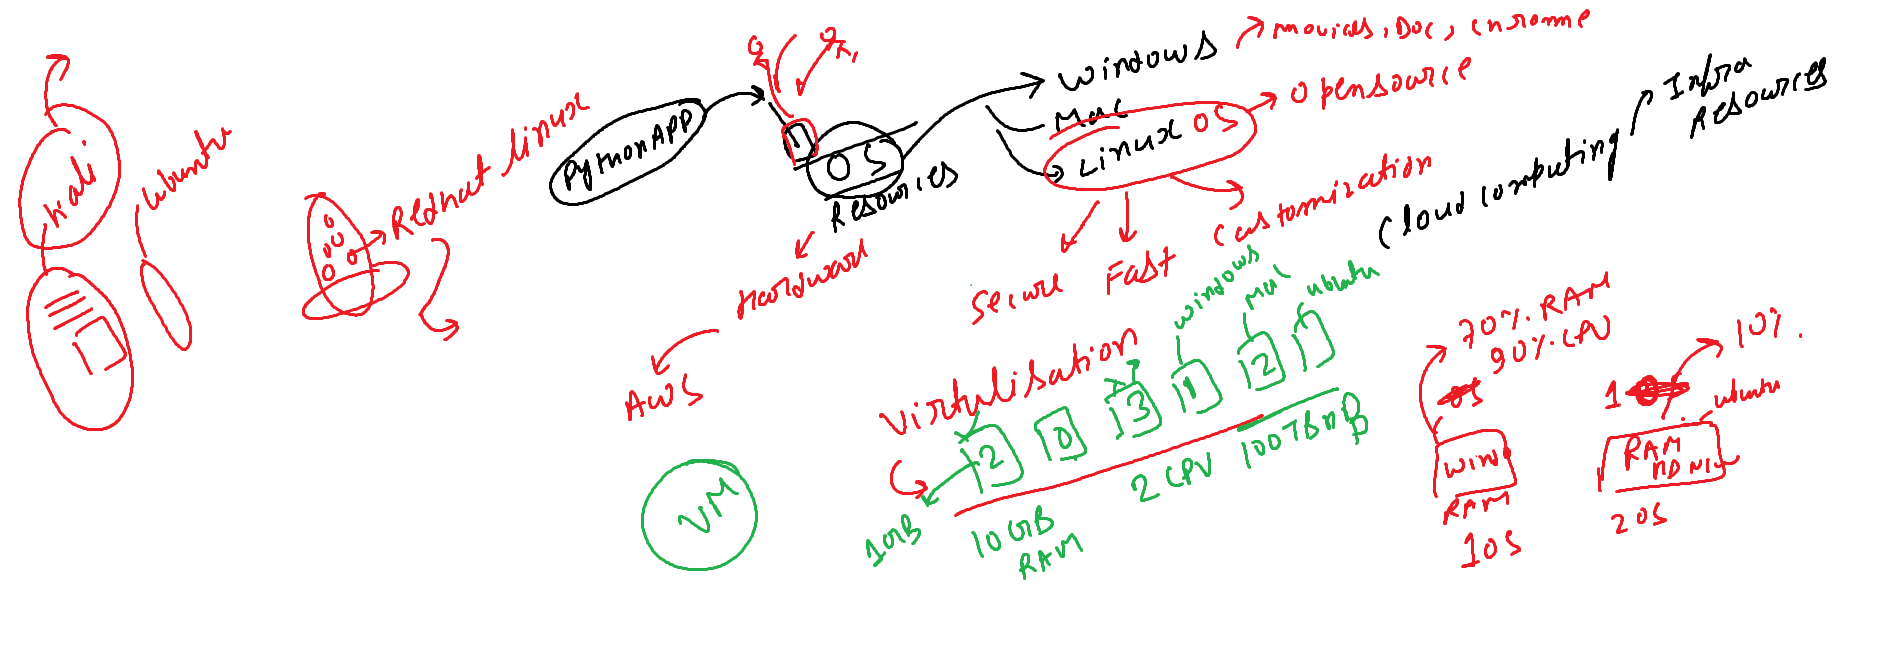 Kali
ubuntu
Redhat Linux
Python APP
OS
Resources
Hardward
AWS
Windows
movies, Doc, chrome
Mac
Linux OS
Opensource
Secure
Fast
Customization
Cloud computing
Infra
Resources
Virtulisation
windows
Mac
ubuntu
2
0
3
1
2
1
1GB
10 GB
RAM
2 CPU
100TB
VM
70% RAM
90% CPU
OS
WIN
RAM
1OS
10%.
1
ubuntu
RAM
2OS